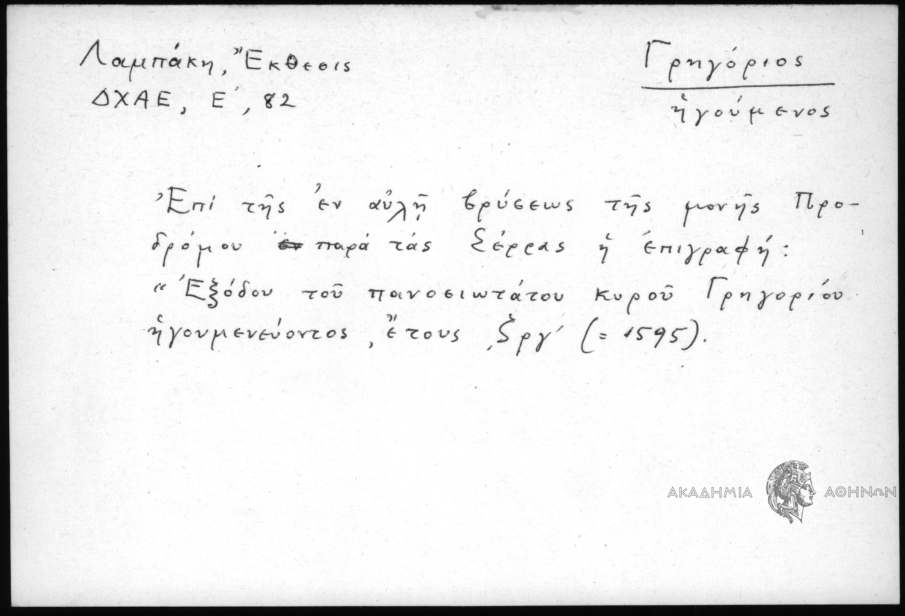 Λαμπάκη, Ἔκθεσις
ΔΧΑΕ, Ε΄, 82
Γρηγόριος
ἡγούμενος
Ἐπί τῆς ἐν αὐλῇ βρύσεως τῆς μονῆς Προ-
δρόμου παρά τάς Σέρρας ἡ ἐπιγραφή:
"Ἐξόδου τοῦ πανοσιωτάτου κυροῦ Γρηγορίου
ἡγουμενεύοντος, ἔτους ͵ζργ΄ (= 1595).
ΑΚΑΔΗΜΙΑ ΑΘΗΝΩΝ